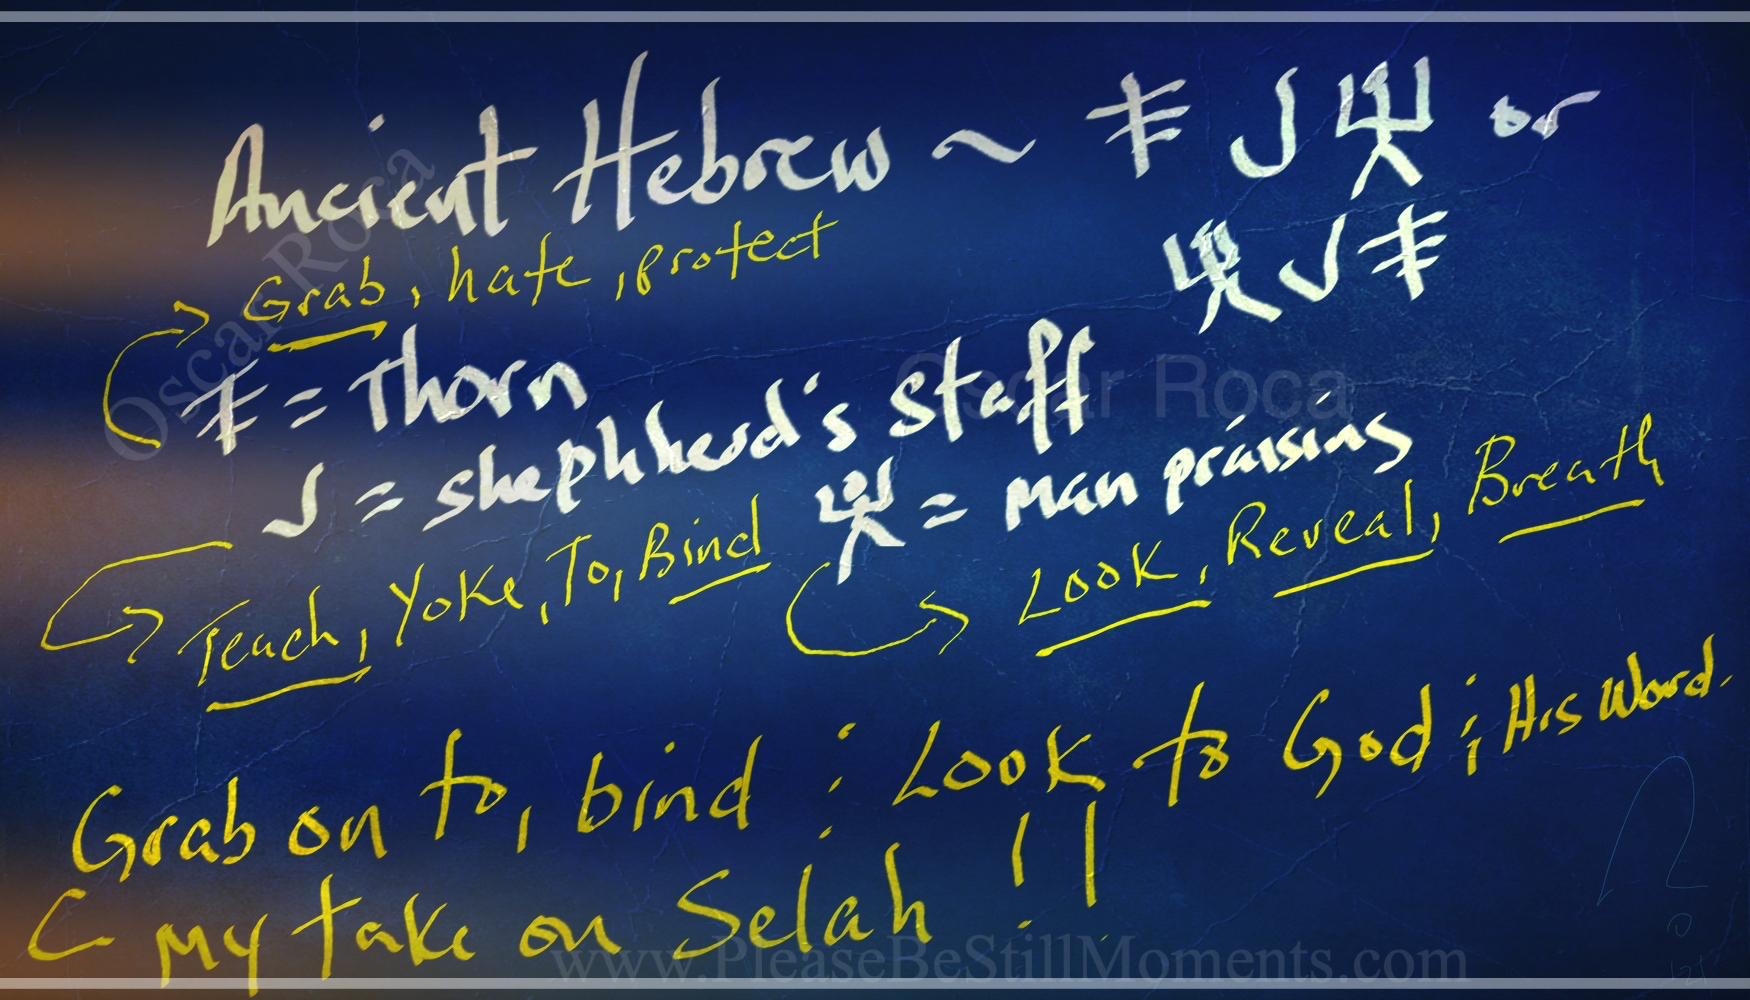 Ancient Hebrew ~ or
Grab, hate, protect
= Thorn
= shephherd's staff
= Man praising
Teach, Yoke, To, Bind
Look, Reveal, Breath
Grab on to, bind ; Look to God ; His Word.
My take on Selah !!
Oscar Roca
Oscar Roca
www.PleaseBeStillMoments.com